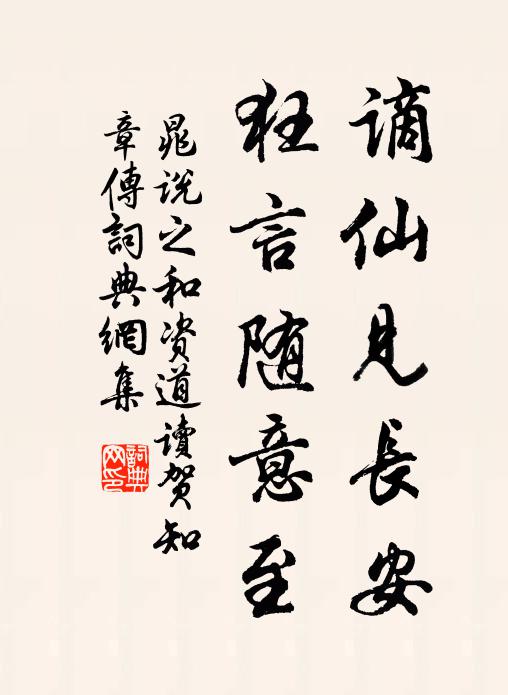 謫仙見長安
狂言随意至
晁說之和资道讀贺知
章傳詞典網集
詞典
网印